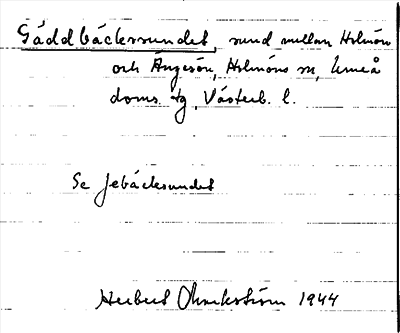 Gäddbäckssundet, sund mellan Holmön
och Ängesön, Holmöns sn, Umeå
doms. tg, Västerb. l.
Se Jebäcksundet
Herbert 1944